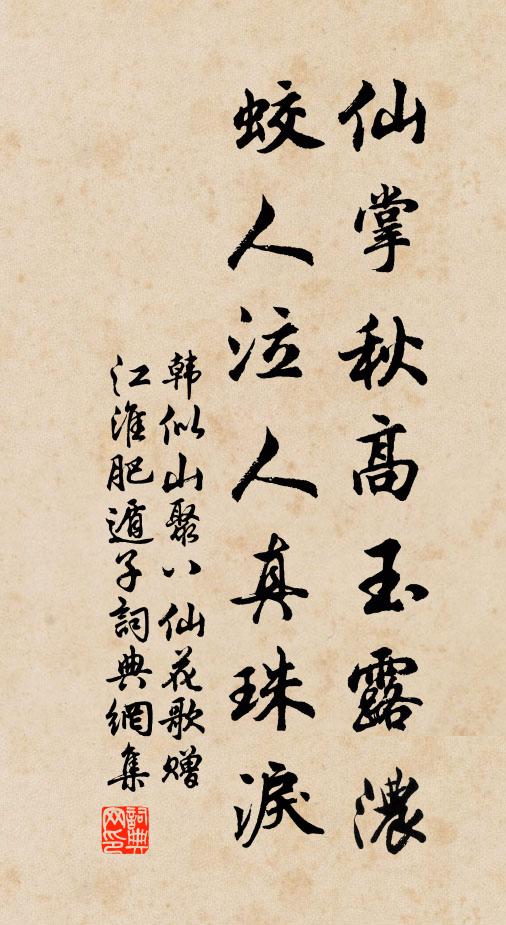 仙掌秋高玉露濃
蛟人泣人真珠淚
韩似山聚八仙花歌赠
江淮肥遁子詞典網集
詞典
网印